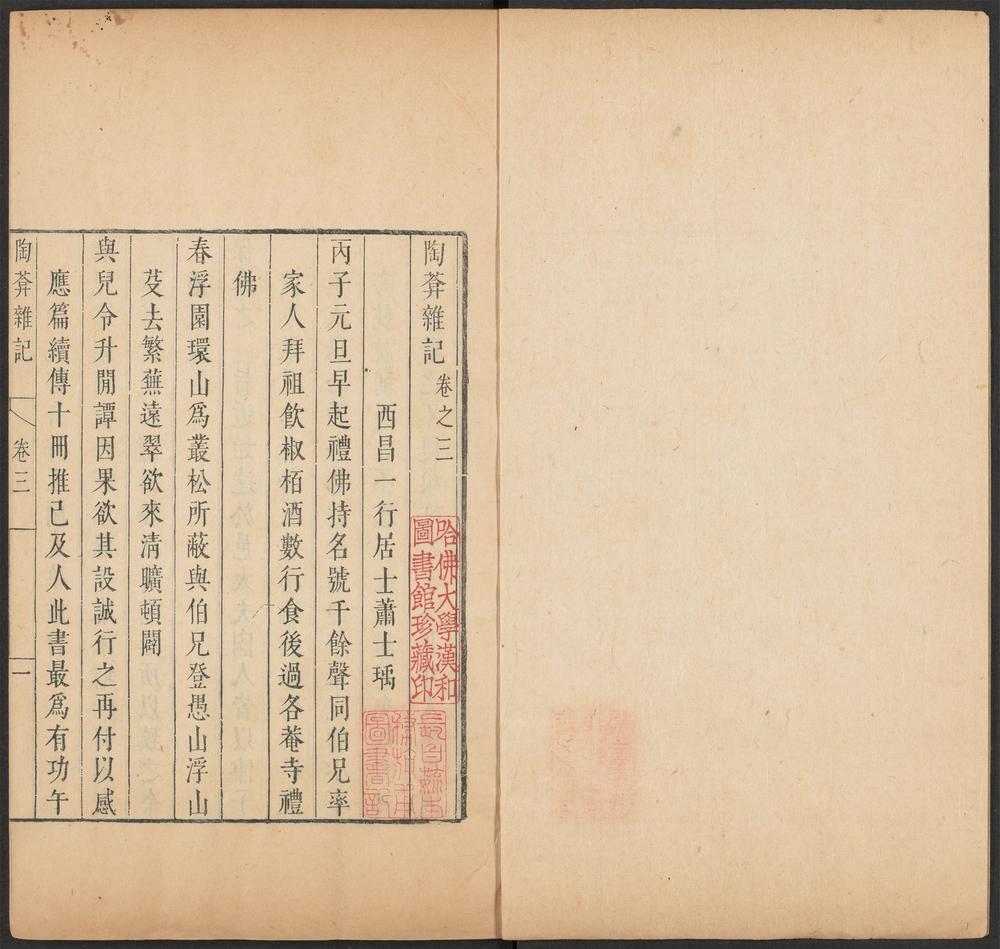 陶菴雜記 卷之三
西昌一行居士蕭士瑀
丙子元旦早起禮佛持名號千餘聲同伯兄率
家人拜祖飲椒栢酒數行食後過各菴寺禮
佛
春浮園環山爲叢松所蔽與伯兄登愚山浮山
芟去繁蕪遠翠欲來淸曠頓闢
與兒令升閒譚因果欲其設誠行之再付以感
應篇續傳十冊推己及人此書最爲有功午
陶菴雜記 卷三 一
哈佛大學漢和
圖書館珍藏印
圖書記